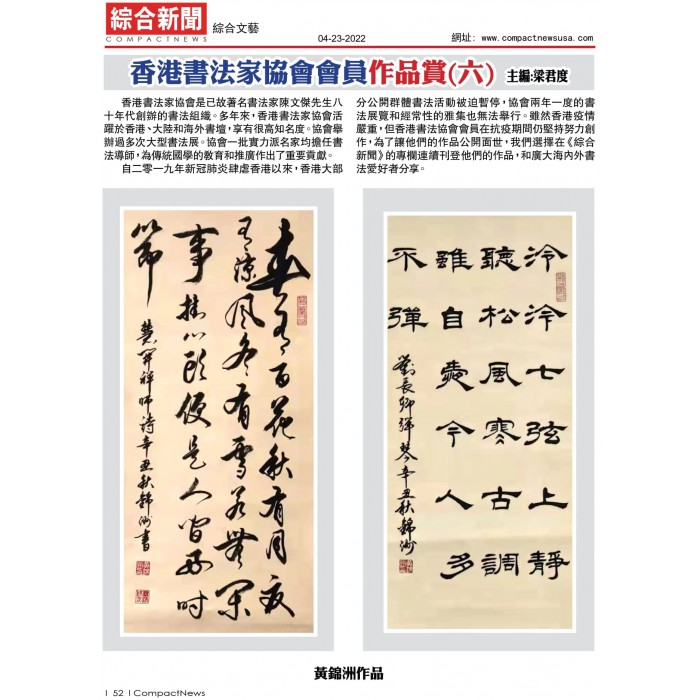 綜合新聞
COMPACTNEWS
綜合文藝
04-23-2022
網址: www.compactnewsusa.com
香港書法家協會會員作品賞(六) 主編:梁君度
香港書法家協會是已故著名書法家陳文傑先生八
十年代創辦的書法組織。多年來,香港書法家協會活
躍於香港、大陸和海外書壇,享有很高知名度。協會舉
辦過多次大型書法展。協會一批實力派名家均擔任書
法導師,為傳統國學的教育和推廣作出了重要貢獻。
自二零一九年新冠肺炎肆虐香港以來,香港大部
分公開群體書法活動被迫暫停,協會兩年一度的書
法展覽和經常性的雅集也無法舉行。雖然香港疫情
嚴重,但香港書法協會會員在抗疫期間仍堅持努力創
作,為了讓他們的作品公開面世,我們選擇在《綜合
新聞》的專欄連續刊登他們的作品,和廣大海內外書
法愛好者分享。
春有百花秋有月夏
有涼風冬有雪若無閑
事掛心頭便是人間好時
節
慧開禪師詩辛丑秋錦洲書
泠泠七弦上靜
聽松風寒古調
雖自愛今人多
不彈
劉長卿彈琴辛丑秋錦洲
黃錦洲作品
I 52 I CompactNews